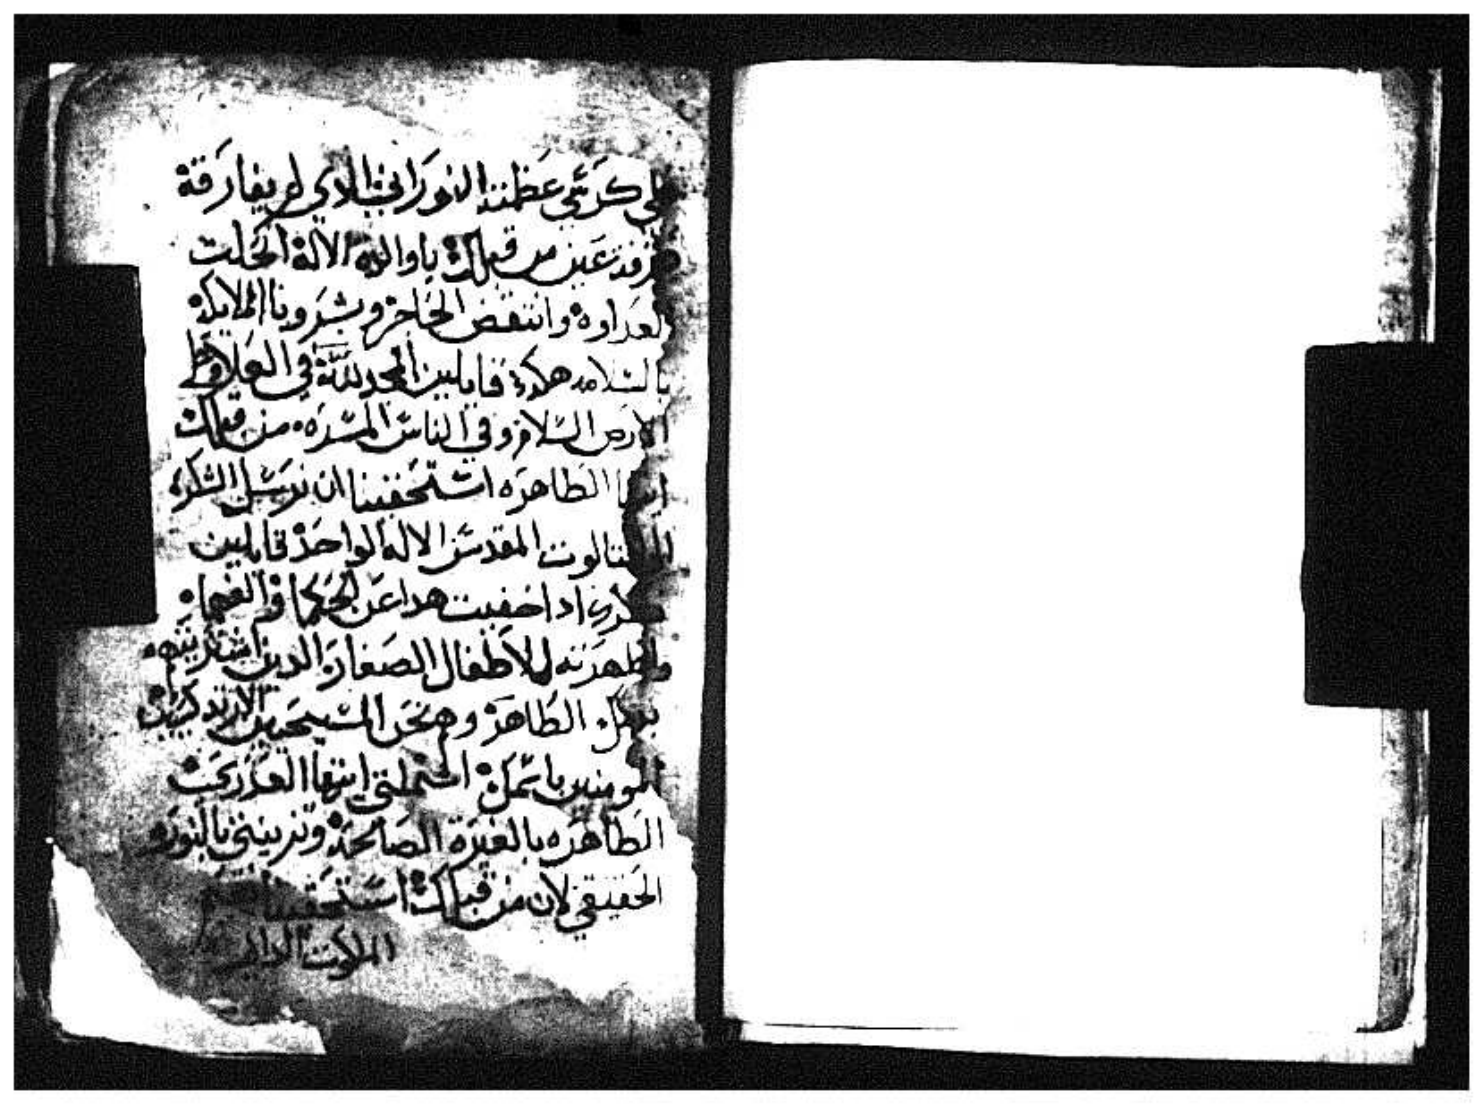 على كرسي عظمته النوراني الدي لم يفارقة
طرفة عين من قبلك يا والدة الالة انحلت
العداوة وانتقض الحاجز وبشرونا الملايكة
بالسلامه هكدة قايلين المجد لله في العلا وعلى
الارض السلام وفي الناس المسره من قبلك
ايتها الطاهره استحقينا ان نرسل الشكر
التالوت المقدس الاله الواحد قايلين
اد اخفيت هدا عن الحكما والفهما
واظهرته للاطفال الصغار الدين اشتريتهم
الطاهر ونحن المسيحين الارتدكسين
المومنين باسمك اشملتي ايتها العدرى
الطاهره بالغيرة الصالحة وتزينيني بالنور
الحقيقي لان من قبلك استحقينا
الملكوت الدايم